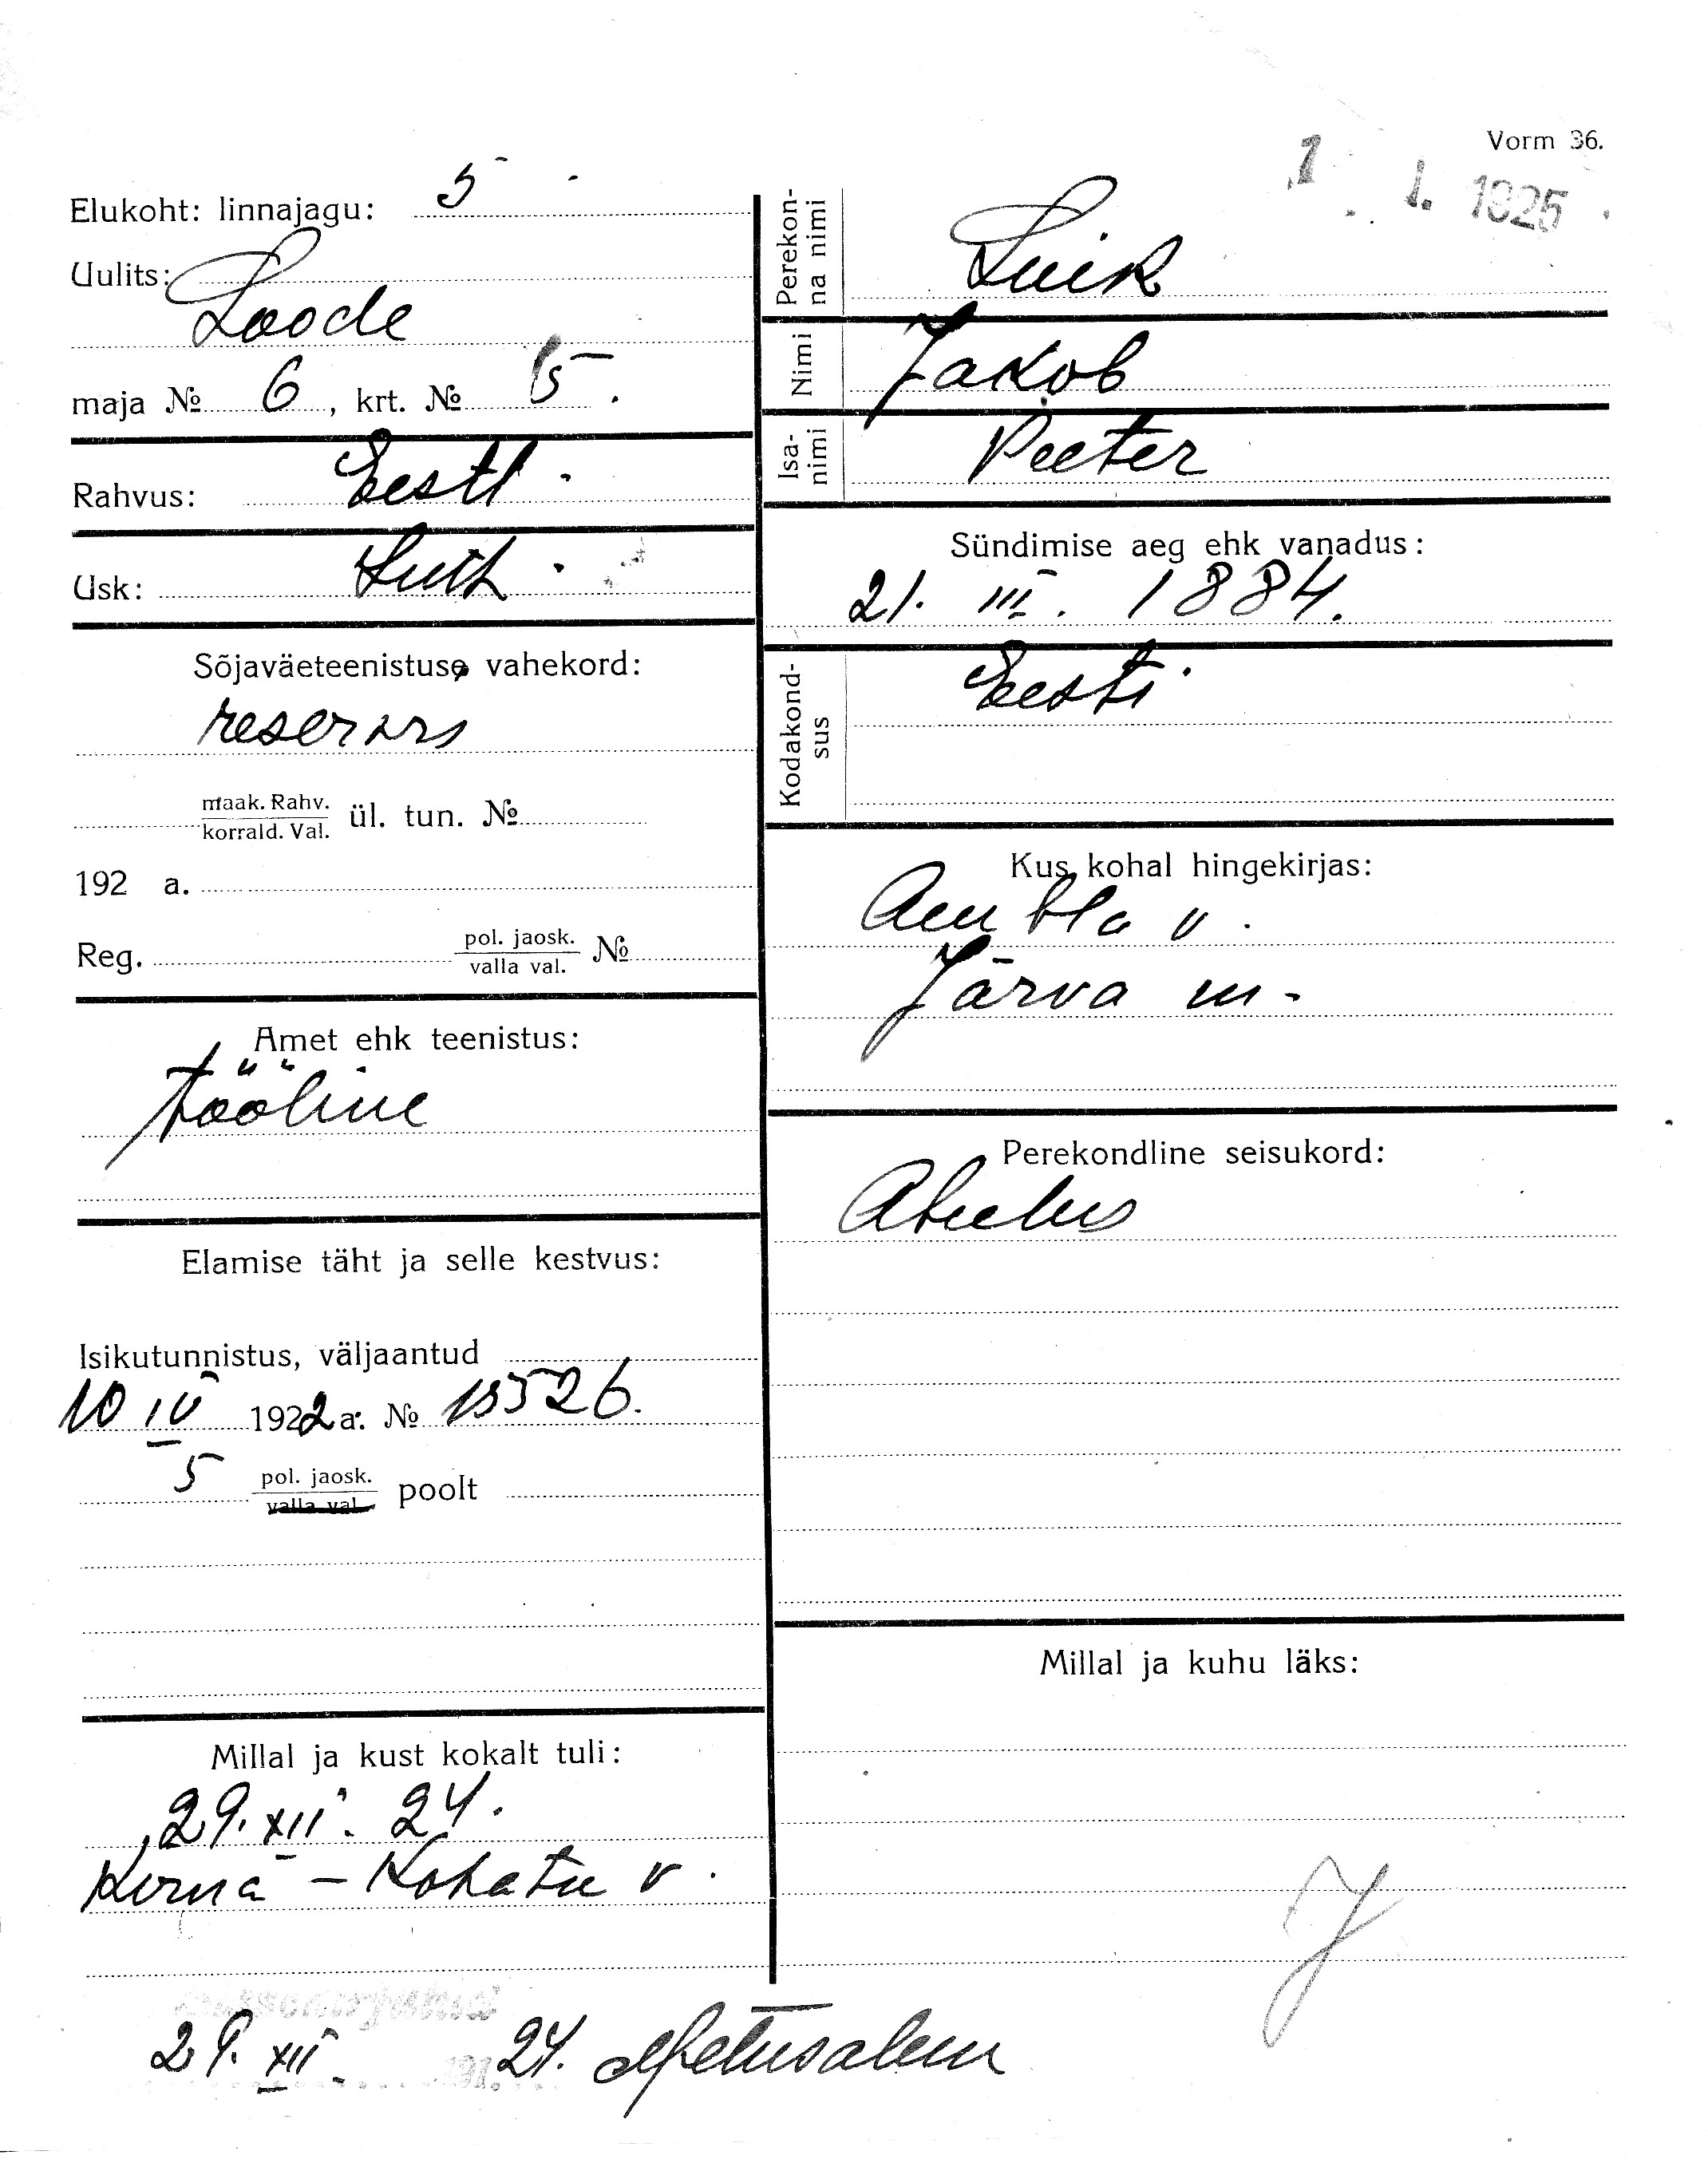 Vorm 36.
1 1. 1925
Elukoht: linnajagu: 5
Uulits:
Loode
maja № 6, krt. № 5.
Rahvus: Eesti
Usk: Luth.
Sõjaväeteenistuse vahekord:
reservis
maak. Rahv.
korrald. Val. ül. tun. №
192 a.
Reg. pol. jaosk.
valla val. №
Amet ehk teenistus:
tööline
Elamise täht ja selle kestvus:
Isikutunnistus, väljaantud
10 IV 1922 a. № 15526.
5 pol. jaosk.
valla val. poolt
Millal ja kust kokalt tuli:
29. XII. 24.
Kernu - Kohatu v.
Perekon-
na nimi
Luik
Nimi Jakob
Isa-
nimi
Peeter
Sündimise aeg ehk vanadus:
21. III. 1884.
Kodakond-
sus
Eesti
Kus kohal hingekirjas:
Ambla v.
Järva m.
Perekondline seisukord:
Abielus
Millal ja kuhu läks:
J
29. XII. 24. Metusalem